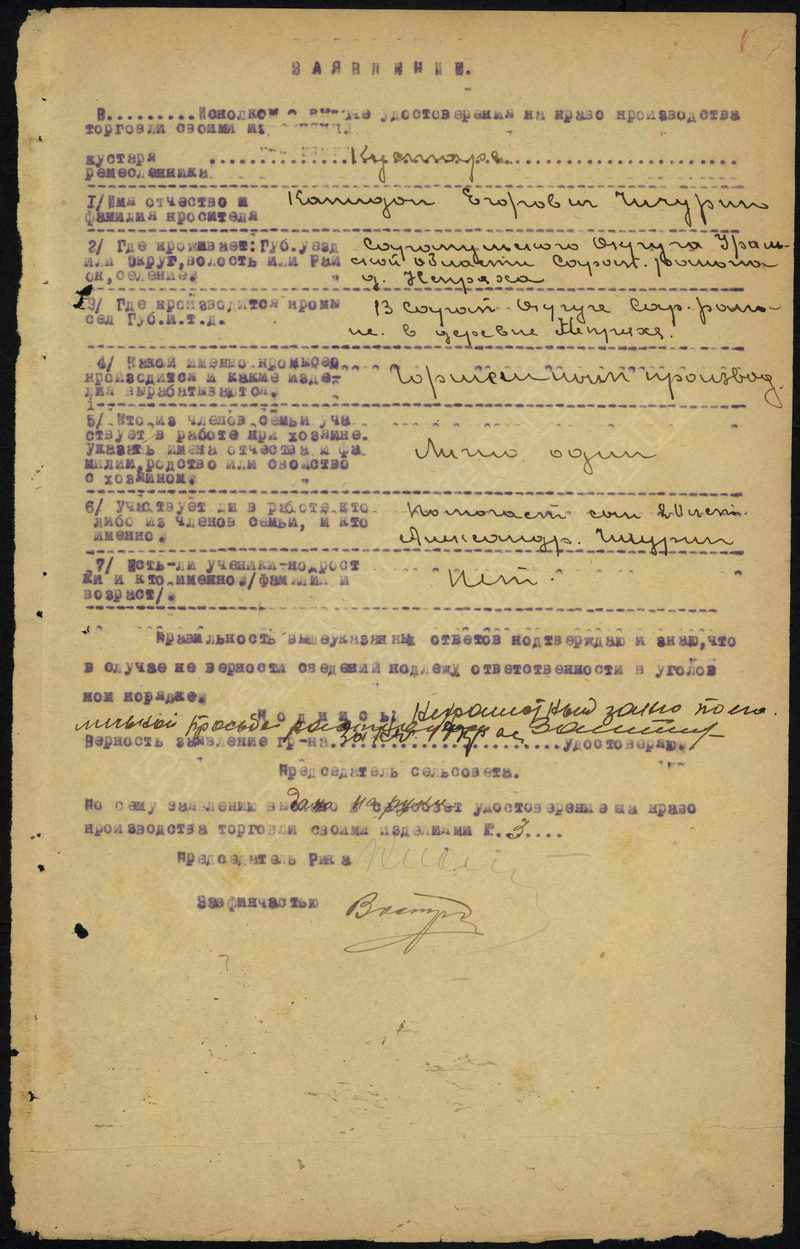 ЗАЯВЛЕНИЕ.
В.........Исполком о выдаче удостоверения на право производства
торговли своими
кустаря ................Кустаря.......................
ремесленника
1/Имя отчество и Капидон Егорович Чичурин
фамилия просителя
2/ Где проживает:Губ.уезд Сарапульского Округа Ураль
или Округ,волость или Рай ской Области Сарап. района
он,селение. " д. Непряха
3/ Где производится промы В Сарап Округе Сар. райо-
сел Губ.и.т.д. не. в деревне Непряха.
4/ Какой именно промысел
производится и какие изде- Горшечный производ.
лия вырабатываются.
5/ Кто из членов семьи уча
ствует в работе при хозяине.
Указать имена отчества и фа Лично один
милии,родство или свойство
с хозяином. "
6/ Участвует ли в работе кто Помогает сын
либо из членов семьи, и кто Александр. Чичурин
именно.
7/ Есть-ли ученики-подрост
ки и кто именно./фамилии и Нет.
возраст/.
Правильность вышеуказанных ответов подтверждаю и знаю,что
в случае не верности сведений подлежу ответственности в уголов
ном порядке.
Подпись: Неграмотный за него по его
личной просьбе расписался
Верность заявление гр-на......................удостоверяю.
Председатель сельсовета.
По сему заявлению выдано на руки удостоверение на право
производства торговли своими изделиями №.3....
Председатель Рика
Завфинчастью